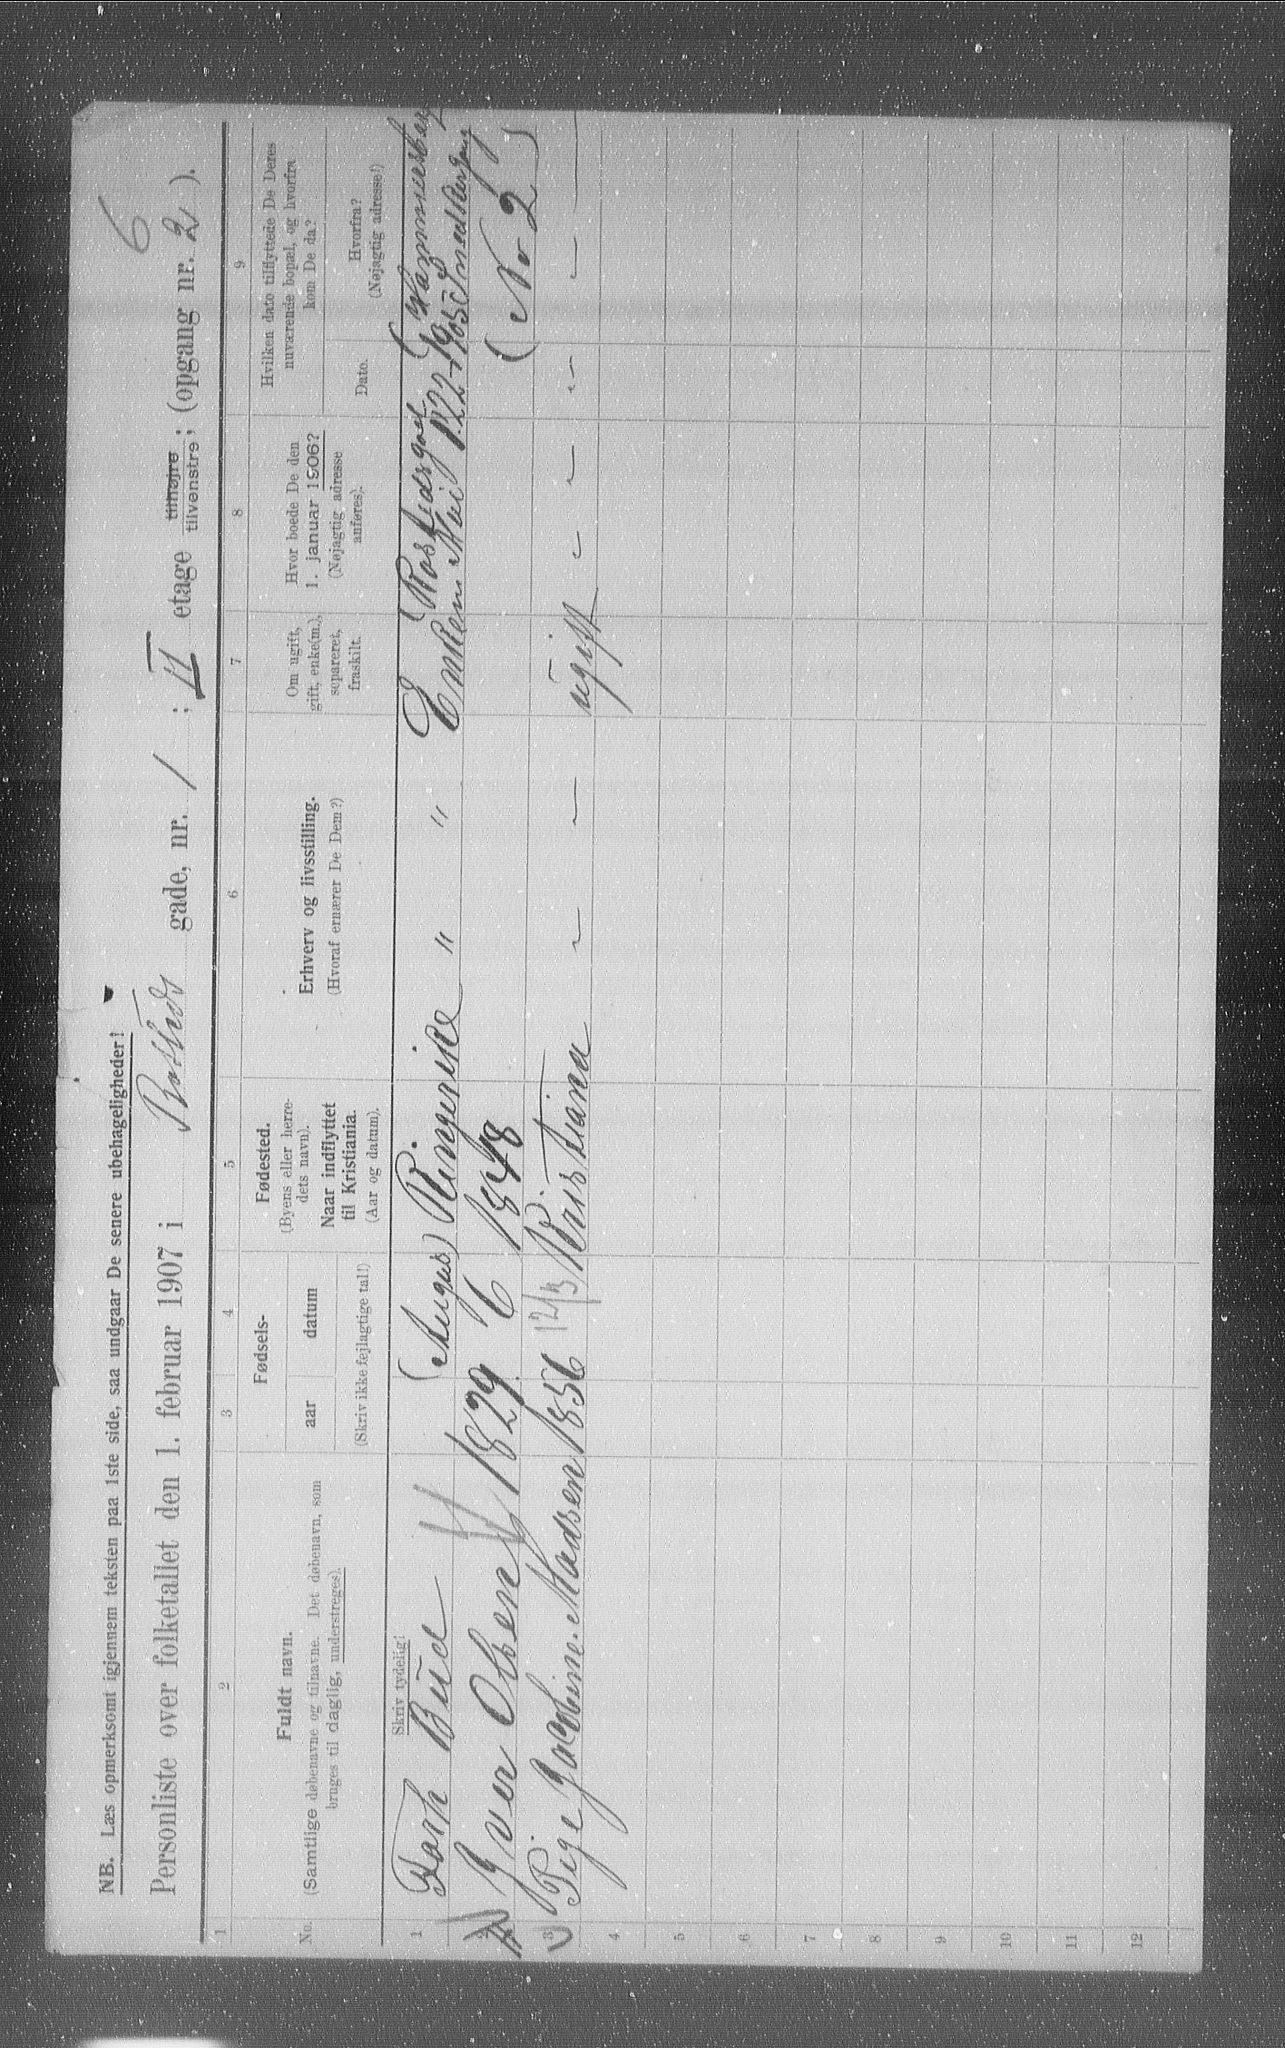 6
NB. Læs opmerksomt igjennem teksten paa 1ste side, saa undgaar De senere ubehageligheder!
Personliste over folketallet den 1. februar 1907 i Rosteds gade, nr. 1 ; II etage tilhøjre tilvenstre ; (opgang nr. 2 ).
1 2 3 4 5 6 7 8 9
No.
Fuldt navn.
(Samtlige døbenavne og tilnavne. Det døbenavn, som
bruges til daglig, understreges).
Fødsels-
aar datum
(Skriv ikke fejlagtige tal!)
Fødested.
(Byens eller herre-
dets navn).
Naar indflyttet
til Kristiania.
(Aar og datum).
Erhverv og livsstilling.
(Hvoraf ernærer De Dem?)
Om ugift,
gift, enke(m.),
separeret,
fraskilt.
Hvor boede De den
1. januar 1906?
(Nøjagtig adresse
anføres).
Hvilken dato tilflyttede De Deres
nuværende bopæl, og hvorfra
kom De da?
Dato.
Hvorfra?
(Nøjagtig adresse!)
Skriv tydelig!
1 Bud (August) Ringerike " " E (Rostedsgad
2 Iver Olsen 1829 6 1848 Enkem 22 1905 Smedbergang
(No 2)
3 Pige Jacobine Madsen 1856 12/3 Kristiana — — ugift — — — —
4
5
6
7
8
9
10
11
12